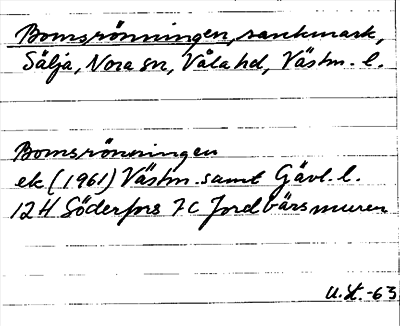 Bomsrönningen, sankmark,
Sälja, Nora sn, Våla hd, Västm. l.
Bomsrönningen
ek (1961) Västm. samt Gävl. l.
12H Söderfors 7c Jordbärsmuren
U.St.-63